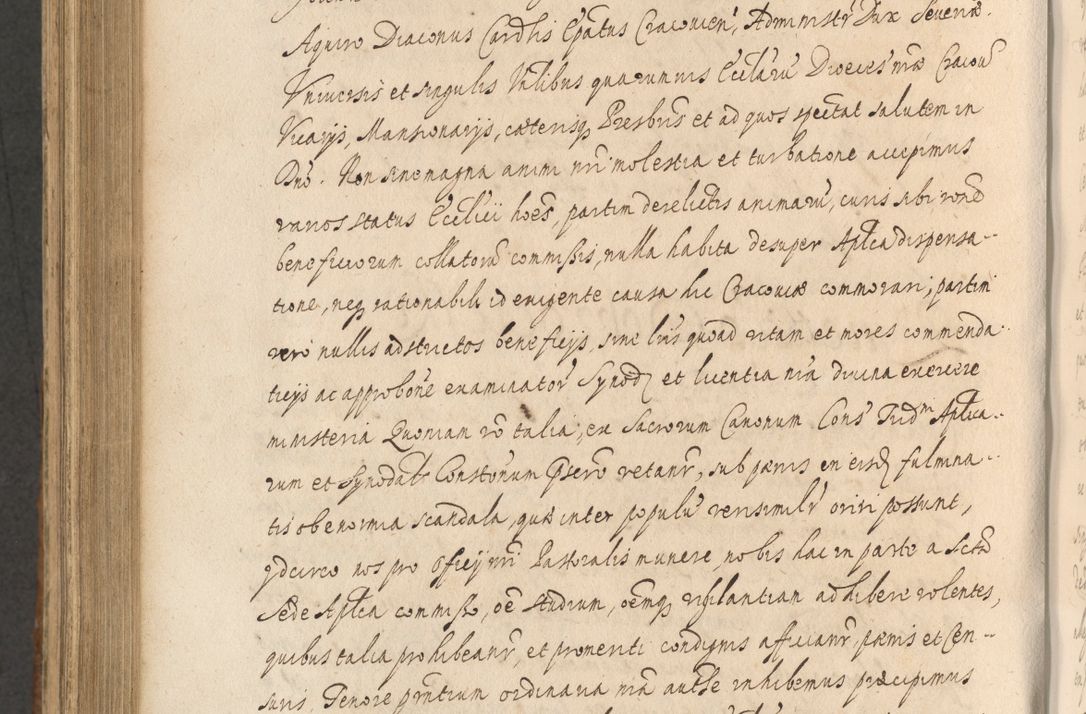 Aquiro Diaconus Cardlis Epatus Cracovien', Administr' Dux Severiæ.
Universis et singulis Vnlibus quarumvis Ecclaru' Dioeces' nræ Cracov'
Vicarijs, Mansionarijs, cæterisq, Presbris et ad quos spectat salutem in
Dno'. Non sine magna animi nri molestia et turbatione accepimus
varios status Eccl'icii hoes, partim derelictis animaru', curis sibi rone
beneficiorum collatoru' commissis, nulla habita desuper Aplica dispensa..
tione, neq, rationabili id exigente causa hic Cracoviæ commorari; partim
vero nullis adstrictos beneficijs, sine l'ris quoad vitam et mores commenda..
ticijs ac approbone examinator' Synod, et licentia nra divina exercere
ministeria Quoniam ro talia, ex Sacrorum Canonum Cons' Trid'm Aplica..
rum et Synodal' Constonum Pscro vetanr', sub pænis in eisd, fulmina..
tis ob enormia scandala, quæ inter populu' verisimilr' oriri possunt,
qdcirco nos pro officij nri Pastoralis munere nobis hac in parte a Scta
Sede Aplica commisso, oe studium, oemq, vigilantiam adhibere volentes,
quibus talia prohibeanr', et promeriti condignis afficianr' pænis et Cen..
suris. Tenore pntium ordinaria nra autthe inhibemus præcipimus